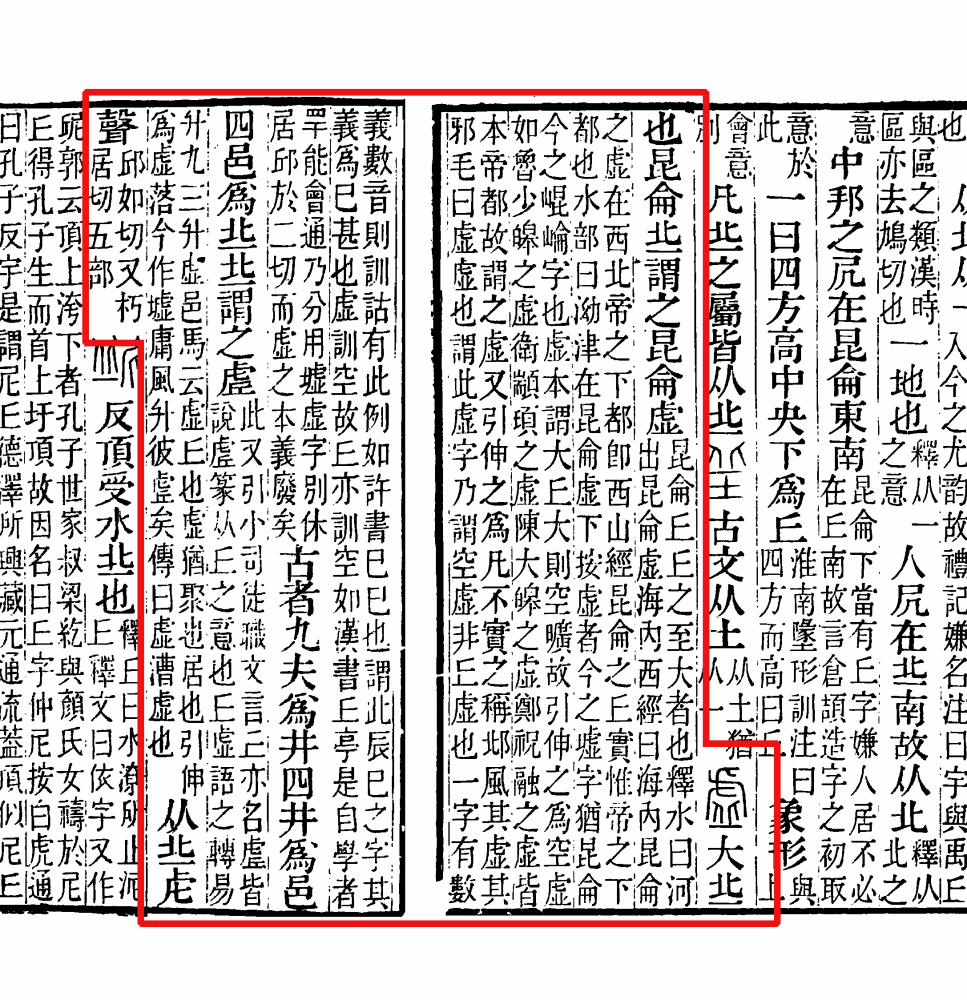 也 从北从一入今之尤韵故禮記嫌名注曰宇與禹丘
與區之類漢時區亦去鳩切也一地也釋从一之意人凥在丘南故从北釋从北之
意中邦之凥在昆侖東南昆侖下當有丘字嫌人居不必在丘南故言倉頡造字之初取
意於此一曰四方高中央下爲丘淮南墬形訓注曰四方而高曰丘象形與上
會意別凡丘之屬皆从丘古文从土从土猶从一虛大丘
也昆侖丘謂之昆侖虛昆侖丘丘之至大者也釋水曰河出昆侖虛海內西經曰海內昆侖
之虛在西北帝之下都卽西山經昆侖之丘實惟帝之下
都也水部曰泑津在昆侖虛下按虛者今之墟字猶昆侖
今之崐崘字也虛本謂大丘大則空曠故引伸之爲空虛
如魯少皞之虛衛顓頊之虛陳大皞之虛鄭祝融之虛皆
本帝都故謂之虛又引伸之爲凡不實之稱邶風其虛其
邪毛曰虛虛也謂此虛字乃謂空虛非丘虛也一字有數
義數音則訓詁有此例如許書巳巳也謂此辰巳之字其
義爲巳甚也虛訓空故丘亦訓空如漢書丘亭是自學者
罕能會通乃分用墟虛字別休居邱於二切而虛之本義廢矣古者九夫爲井四井爲邑
四邑爲丘丘謂之虛此又引小司徒職文言丘亦名虛皆說虛篆从丘之意也丘虛語之轉易
升九三升虛邑馬云虛丘也虛猶聚也居也引伸爲虛落今作墟庸風升彼虛矣傳曰虛漕虛也从丘虍
聲邱如切又朽居切五部反頂受水丘也釋丘曰水潦所止泥丘釋文曰依字又作
𡰥郭云頂上洿下者孔子世家叔梁紇與顏氏女禱於尼
丘得孔子生而首上圩頂故因名曰丘字仲尼按白虎通
曰孔子反宇是謂尼丘德澤所興藏元通流蓋頂似尼丘